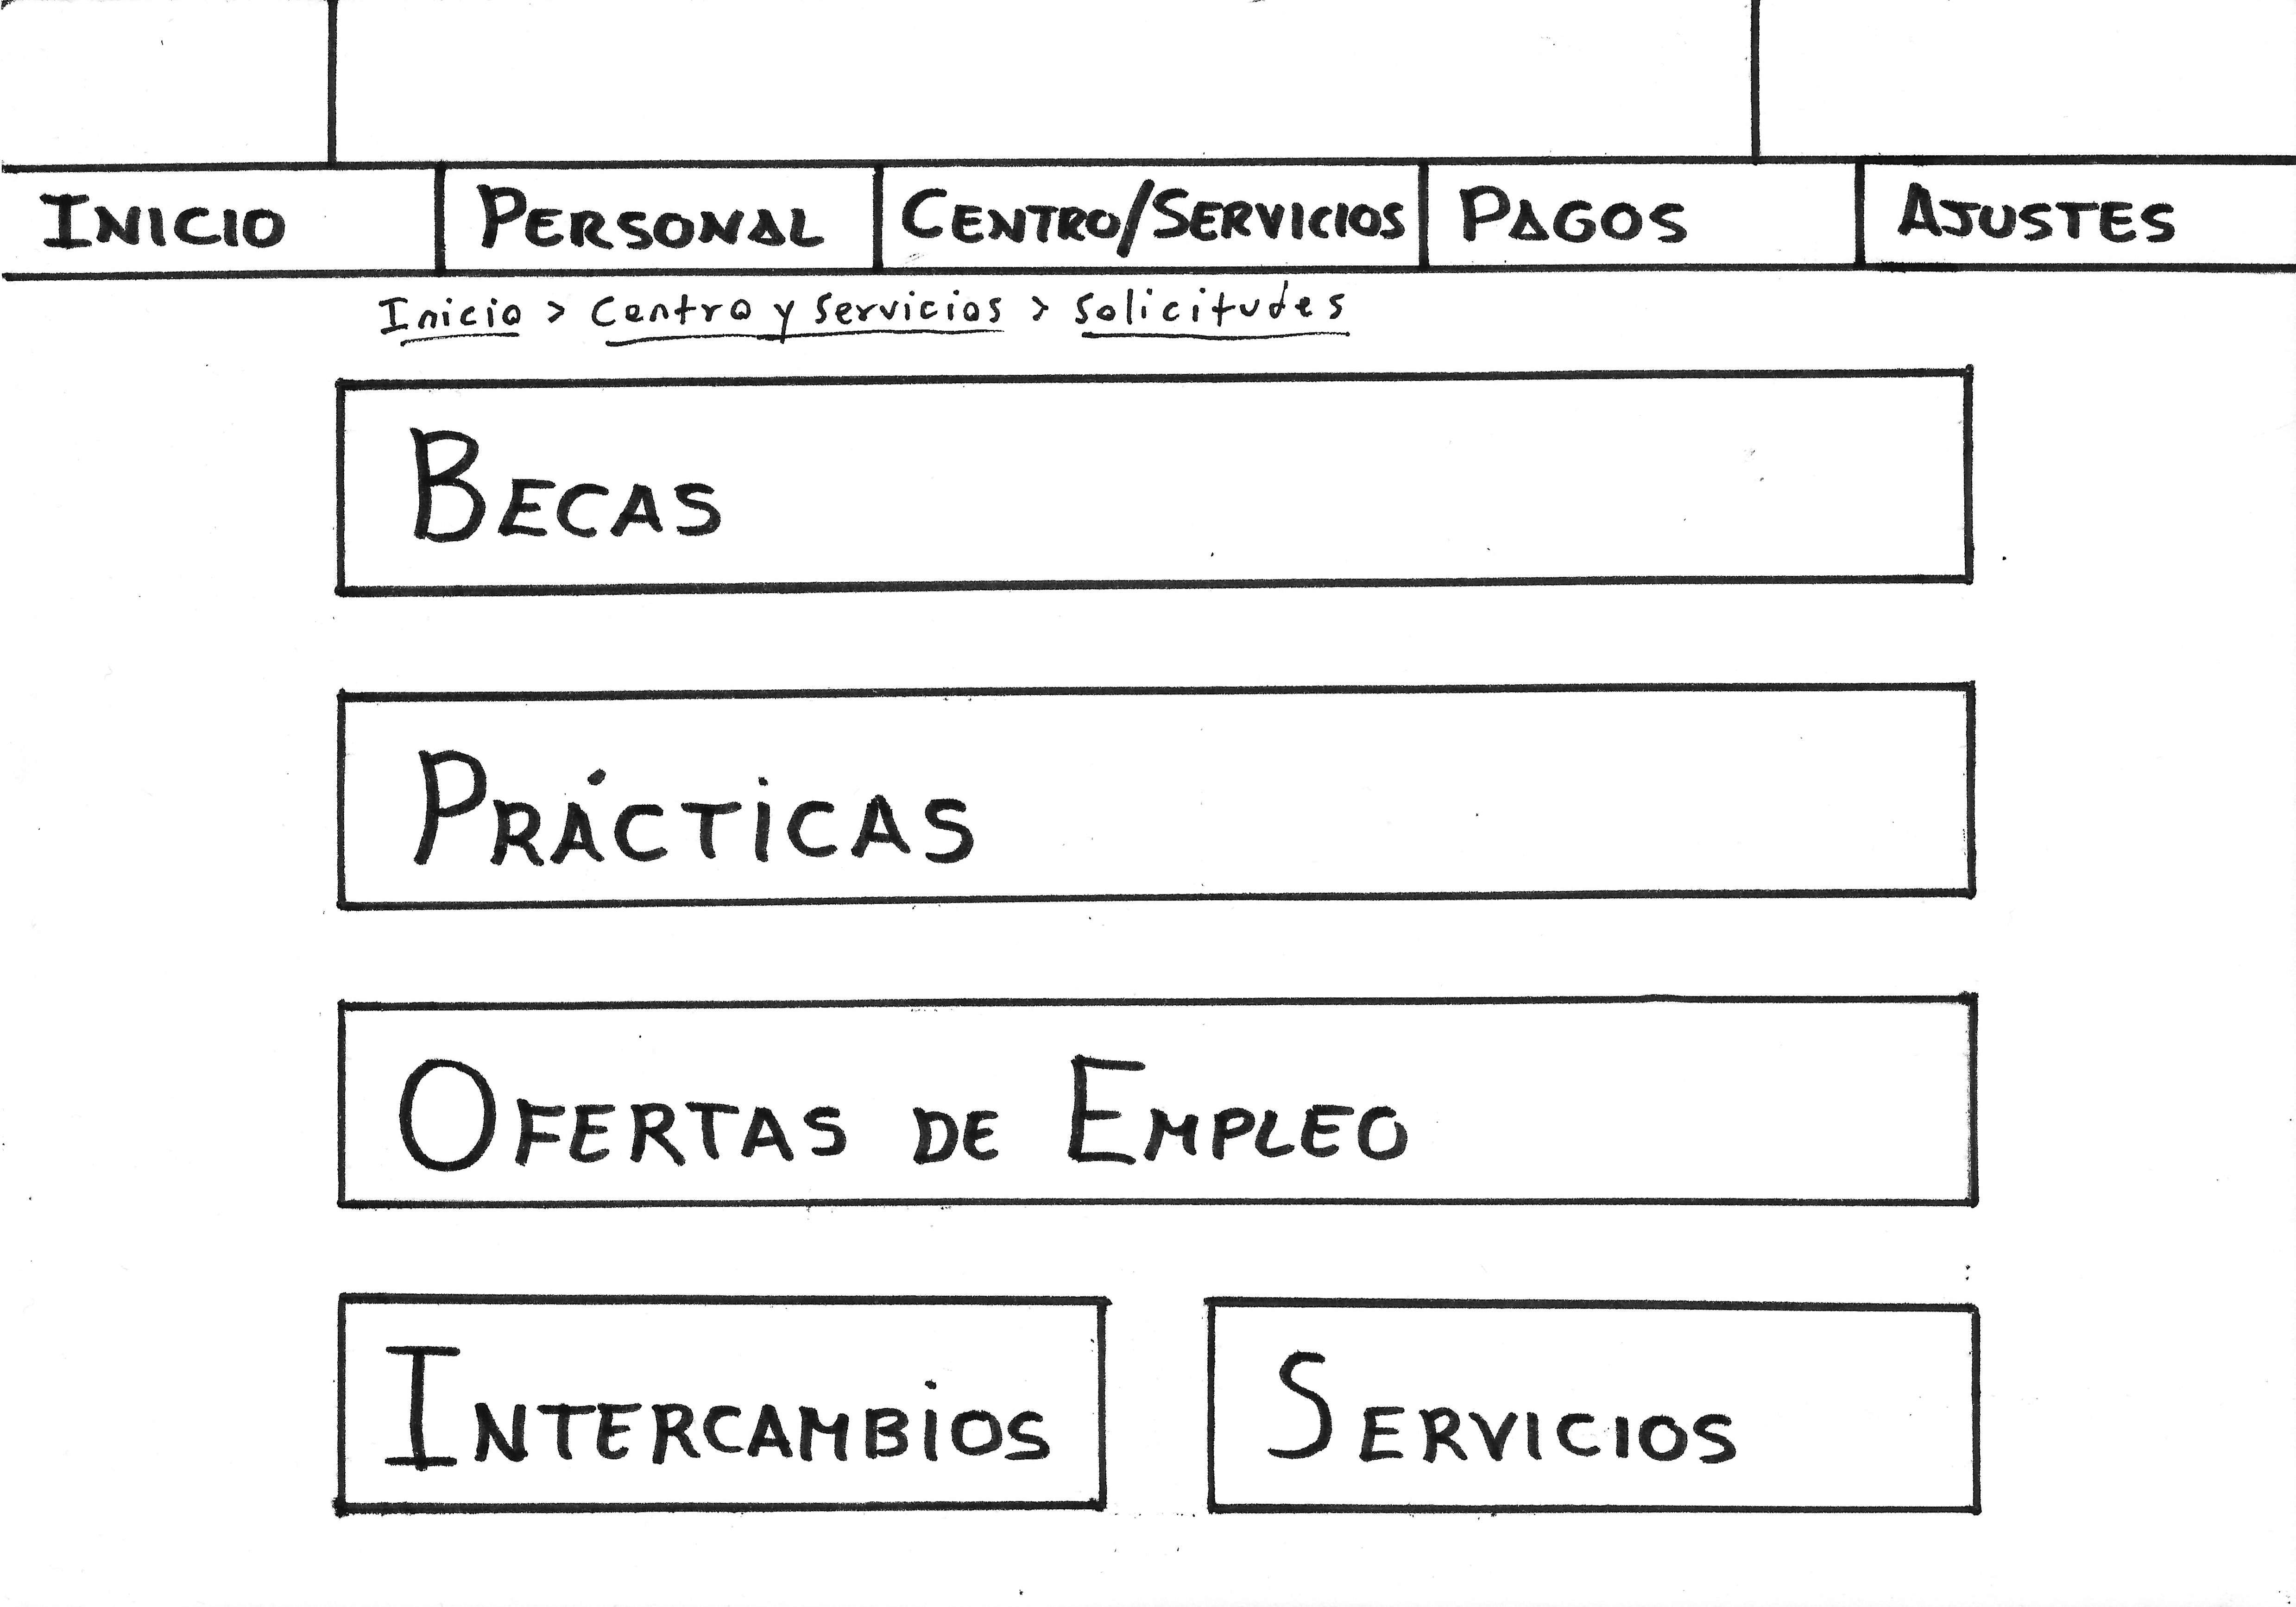 INICIO PERSONAL CENTRO/SERVICIOS PAGOS AJUSTES
Inicio > Centro y Servicios > Solicitudes
BECAS
PRÁCTICAS
OFERTAS DE EMPLEO
INTERCAMBIOS SERVICIOS